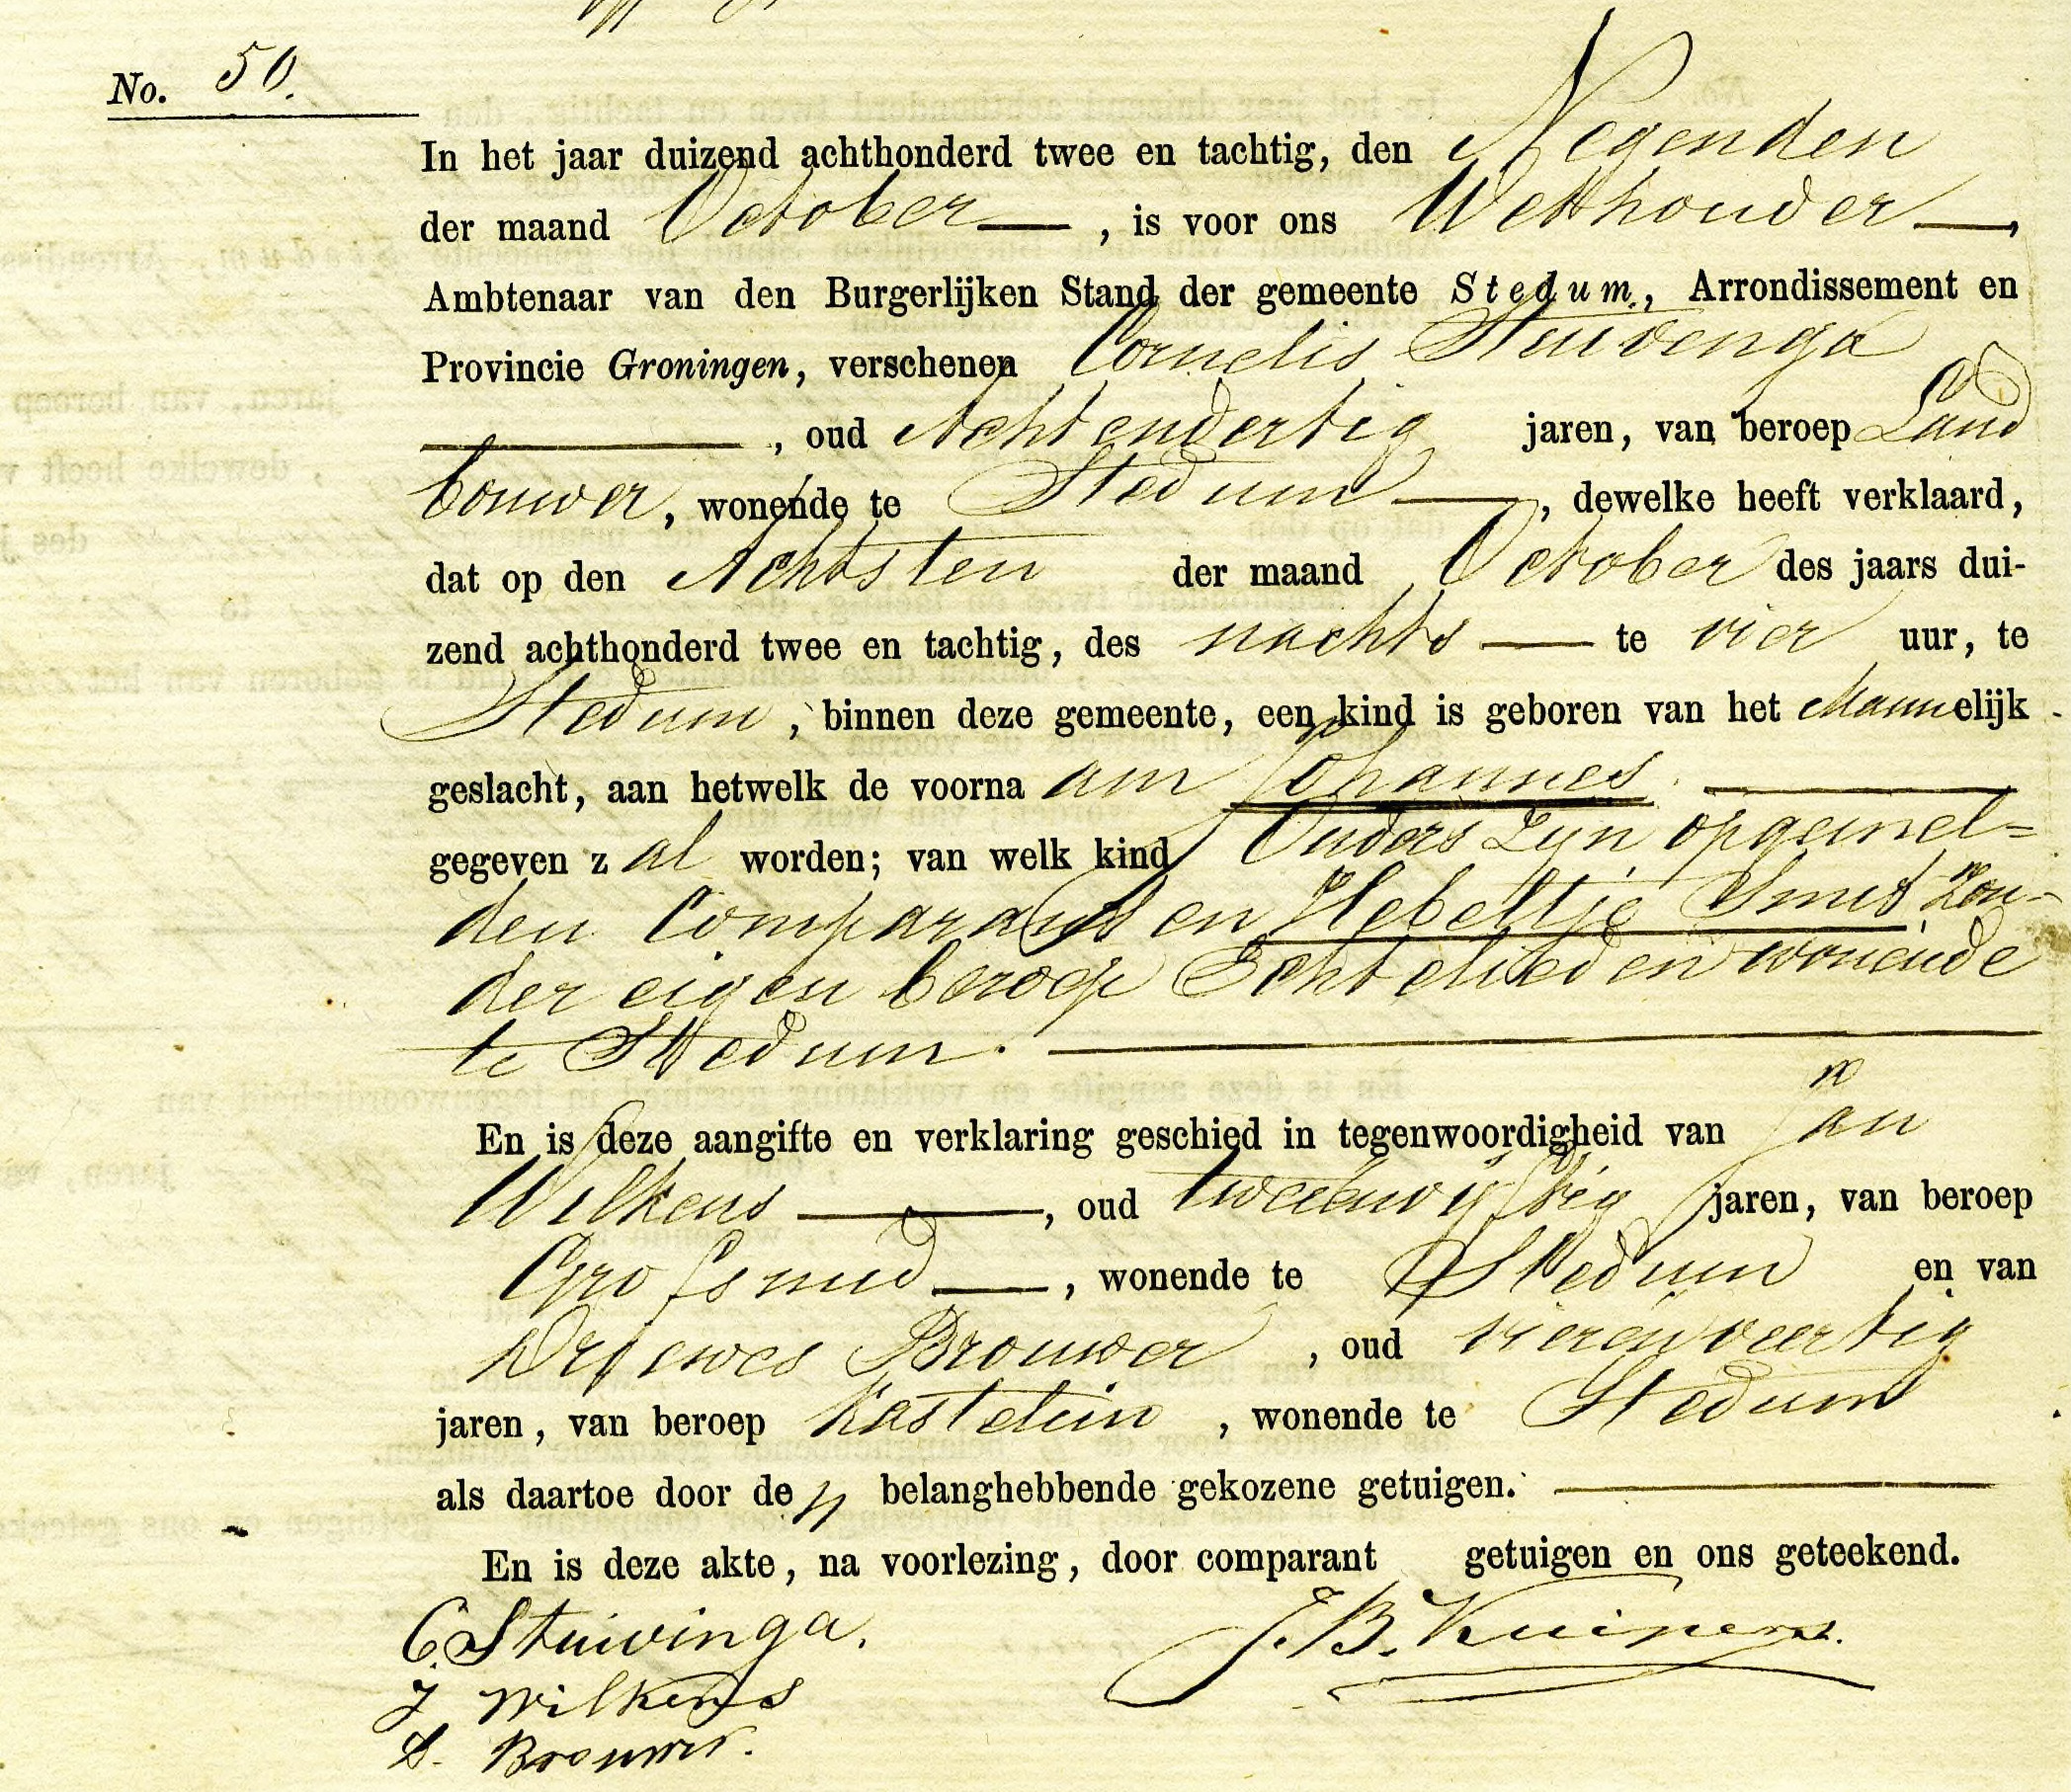 No. 50.
In het jaar duizend achthonderd twee en tachtig, den Negenden
der maand October —, is voor ons Wethouder —,
Ambtenaar van den Burgerlijken Stand der gemeente Stedum, Arrondissement en
Provincie Groningen, verschenen Cornelis Stuivenga
—, oud Achtendertig jaren, van beroep Land
bouwer, wonende te Stedum —, dewelke heeft verklaard,
dat op den Achtsten der maand October des jaars dui-
zend achthonderd twee en tachtig, des nachts — te vier uur, te
Stedum, binnen deze gemeente, een kind is geboren van het Mannelijk
geslacht, aan hetwelk de voorna am Johannes. —
gegeven z al worden; van welk kind Ouders zijn opgemel=
den Comparant en Hebeltje Smit Zon-
der eigen beroep Echtelieden wonende
te Stedum. —
En is deze aangifte en verklaring geschied in tegenwoordigheid van Jan
Wilkens —, oud tweeenvijftig jaren, van beroep
Grofsmid —, wonende te Stedum en van
Driewes Brouwer, oud vierenveertig
jaren, van beroep Kastelein, wonende te Stedum
als daartoe door de belanghebbende gekozene getuigen. —
En is deze akte, na voorlezing, door comparant getuigen en ons geteekend.
C. Stuivinga.
J. B. Kuipers.
J Wilkens
D. Brouwer.